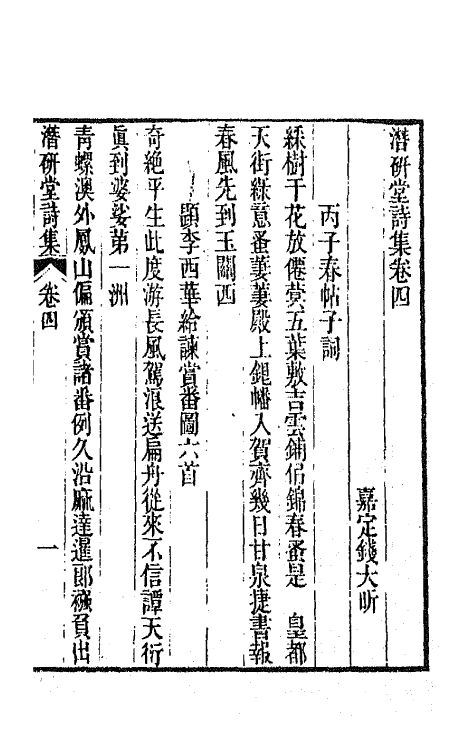 潛研堂詩集卷四
嘉定錢大昕
丙子春帖子詞
綵樹千花放僊蓂五葉敷吉雲鋪佀錦春蚤是 皇都
天街綠意蚤萋萋殿上鏤幡入賀齊幾日甘泉捷書報
春風先到玉關西
題李西華給諫賞番圖六首
奇絶平生此度游長風駕浪送扁舟從來不信譚天衍
眞到婆娑第一洲
靑螺澳外鳳山偏頒賞諸番例久沿麻達暹郎襁負出
潛研堂詩集 卷四 一